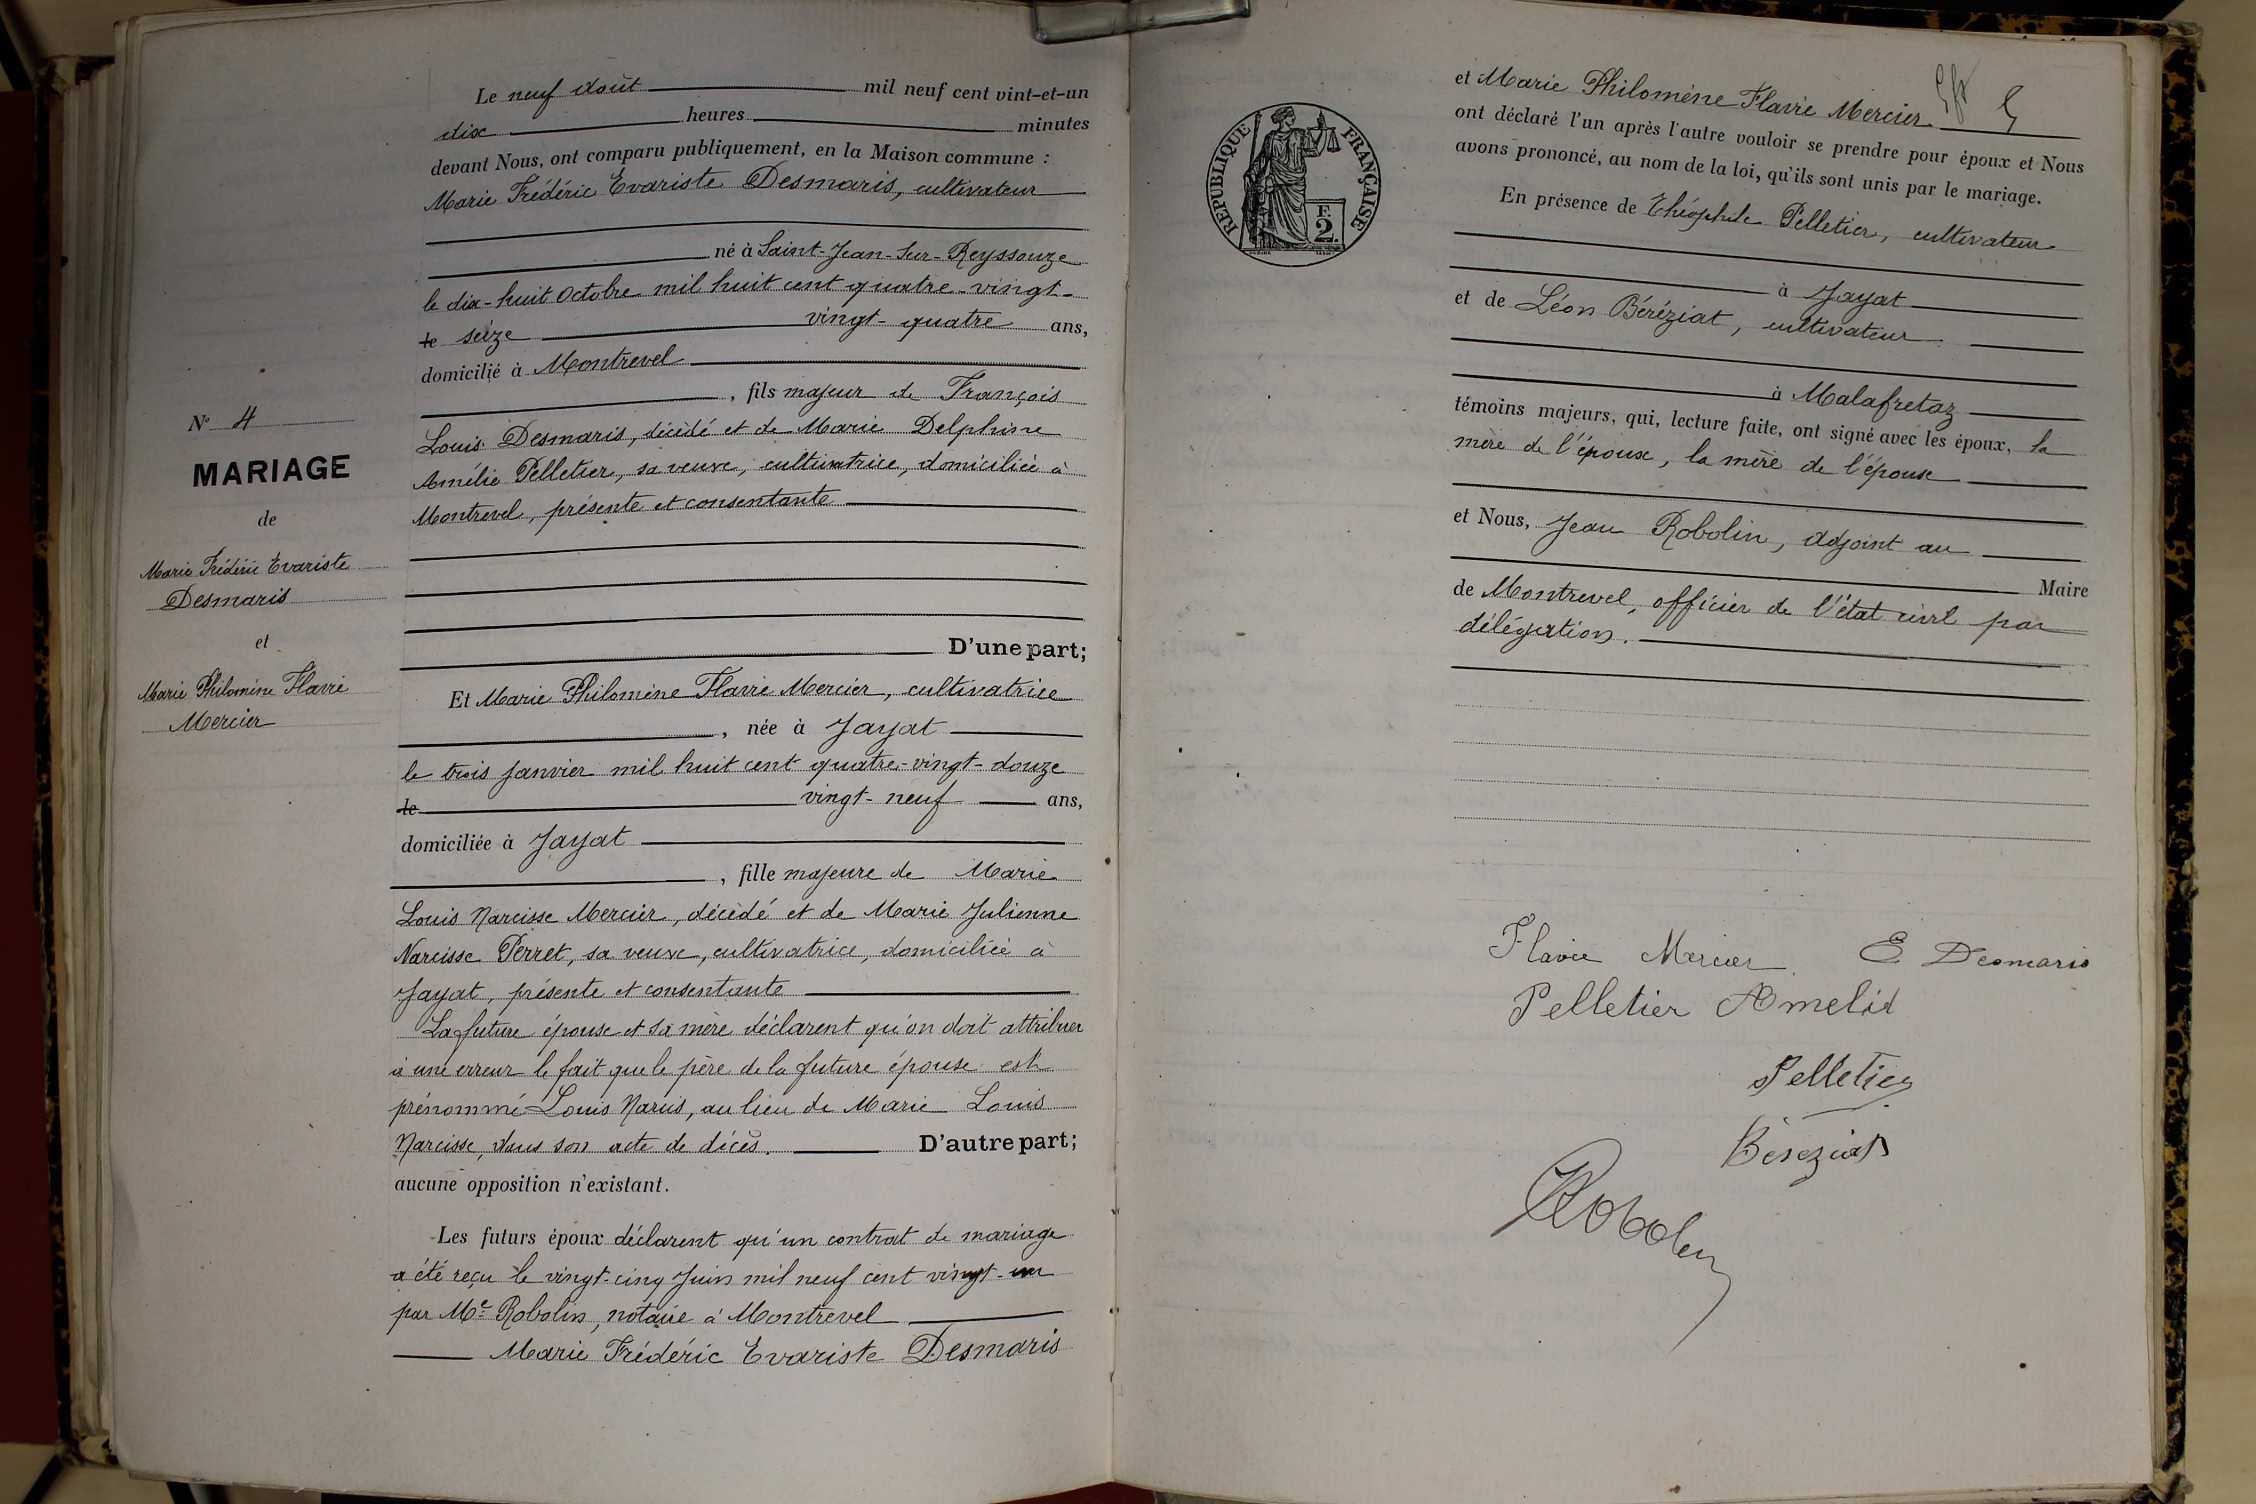 Le neuf Août mil neuf cent vint-et-un
dix heures minutes
devant Nous, ont comparu publiquement, en la Maison commune :
Marie Frédéric Evariste Desmaris, cultivateur
né à Saint-Jean-sur-Reyssouze
le dix-huit Octobre mil huit cent quatre-vingt-
le seize vingt-quatre ans,
domicilié à Montrevel
, fils majeur de François
Louis Desmaris, décédé et de Marie Delphine
Amélie Pelletier, sa veuve, cultivatrice, domiciliée à
Montrevel, présente et consentante
D'une part;
Et Marie Philomène Flavie Mercier, cultivatrice
, née à Jayat
le trois janvier mil huit cent quatre-vingt-douze
le vingt-neuf ans,
domiciliée à Jayat
, fille majeure de Marie
Louis Narcisse Mercier, décédé et de Marie Julienne
Narcisse Perret, sa veuve, cultivatrice, domiciliée à
Jayat, présente et consentante
La future épouse et sa mère déclarent qu'on doit attribuer
à une erreur le fait que le père de la future épouse est
prénommé Louis Narcis, au lieu de Marie Louis
Narcisse, dans son acte de décès. D'autre part;
aucune opposition n'existant.
Les futurs époux déclarent qu'un contrat de mariage
a été reçu le vingt-cinq Juin mil neuf cent vingt-un
par Me Robolin, notaire à Montrevel
Marie Frédéric Evariste Desmaris
N° 4
MARIAGE
de
Marie Frédéric Evariste
Desmaris
et
Marie Philomène Flavie
Mercier
RÉPUBLIQUE FRANÇAISE
F.
2.
et Marie Philomène Flavie Mercier
ont déclaré l'un après l'autre vouloir se prendre pour époux et Nous
avons prononcé, au nom de la loi, qu'ils sont unis par le mariage.
En présence de Théophile Pelletier, cultivateur
à Jayat
et de Léon Béréziat, cultivateur
à Malafretaz
témoins majeurs, qui, lecture faite, ont signé avec les époux, la
mère de l'époux, la mère de l'épouse
et Nous, Jean Robolin, adjoint au
Maire
de Montrevel, officier de l'état civil par
délégation.
Flavie Mercier E Desmaris
Pelletier Amelie
Pelletier
Béréziat
Robolin